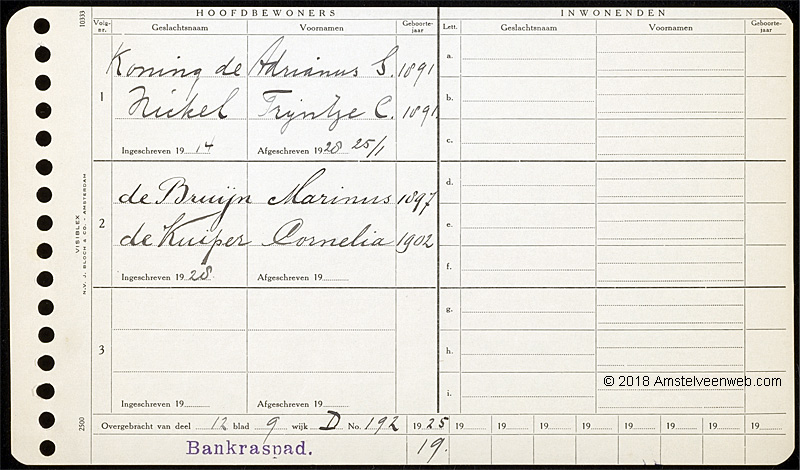 HOOFDBEWONERS
INWONENDEN
Volg-nr. Geslachtsnaam Voornamen Geboorte-jaar
Lett. Geslachtsnaam Voornamen Geboorte-jaar
10333
Koning de Adrianus G. 1891
1
Nickel Trijntje C. 1891
Ingeschreven 19 14 Afgeschreven 1928 25/1
de Bruijn Marinus 1897
2
de Kuiper Cornelia 1902
Ingeschreven 19 28. Afgeschreven 19
3
Ingeschreven 19 Afgeschreven 19
a.
b.
c.
d.
e.
f.
g.
h.
i.
VISIBLEX
N.V. J. BLOCH & CO. - AMSTERDAM
2500
© 2018 Amstelveenweb.com
Overgebracht van deel 12 blad 9 wijk D No. 192 1925 19 19 19 19 19 19 19 19
Bankraspad. 19.